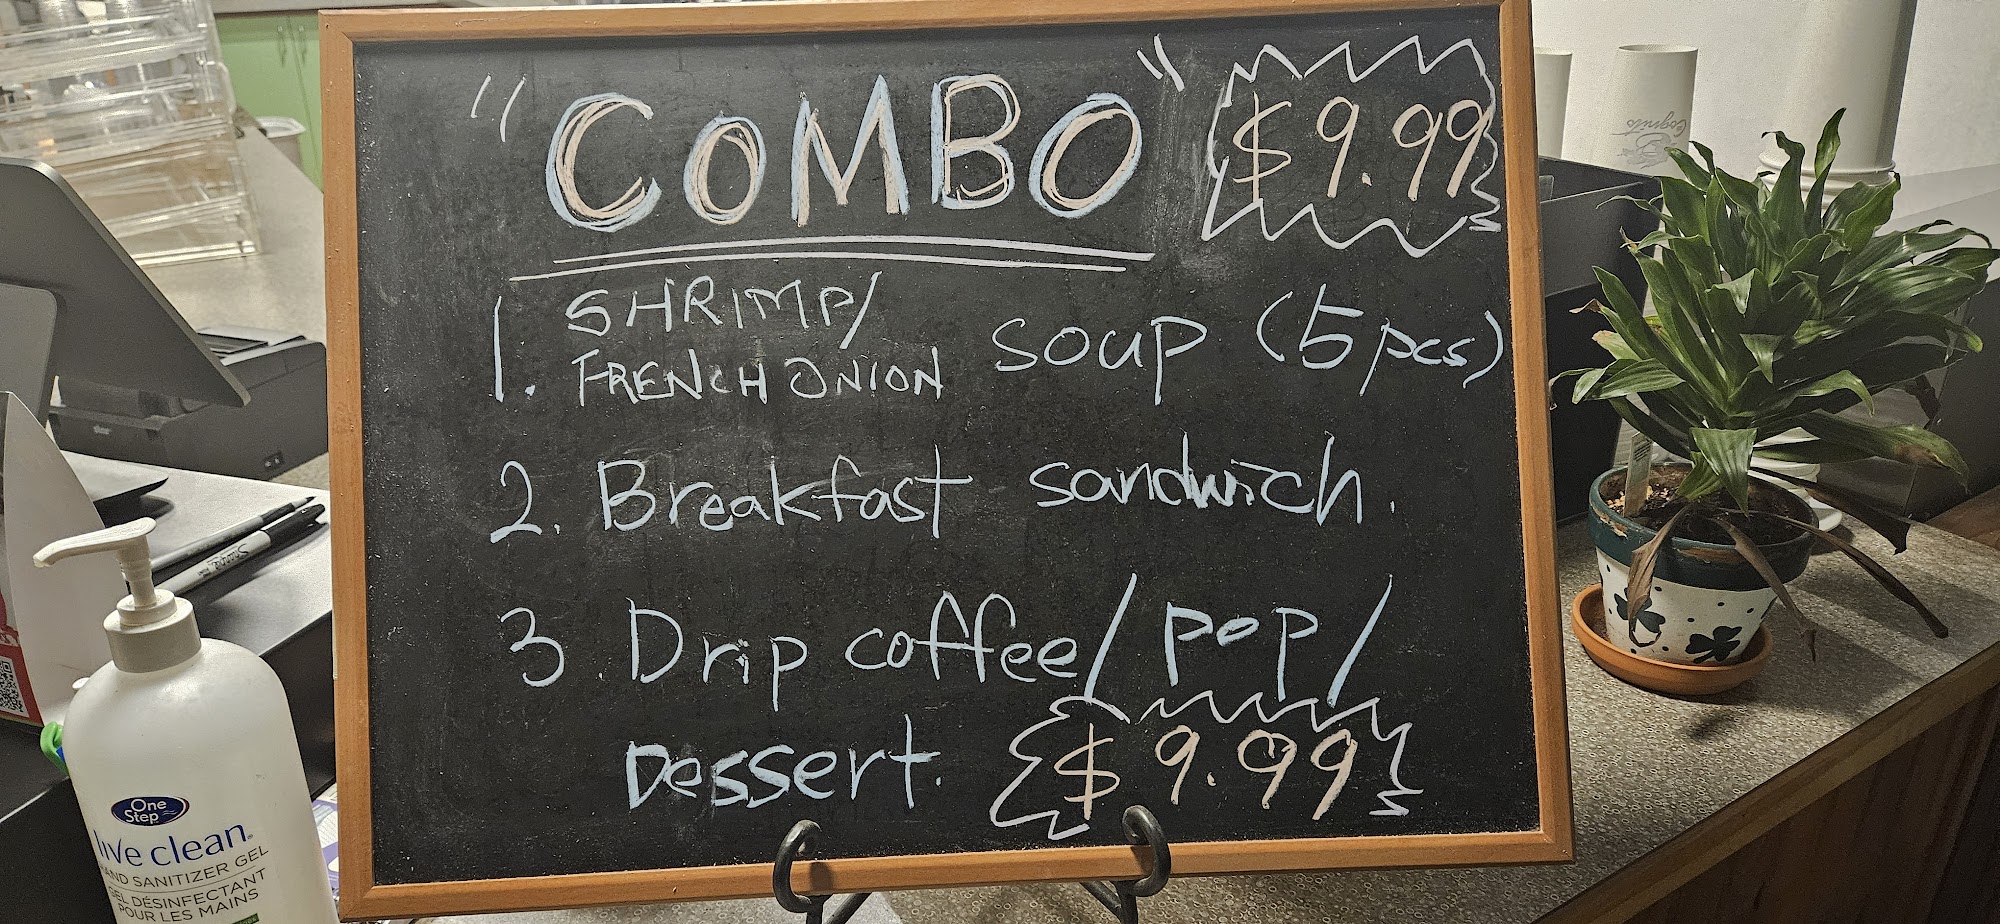 "COMBO" $9.99
1. SHRIMP/
FRENCH ONION soup (5pcs)
2. Breakfast sandwich.
3. Drip coffee/pop/
Dessert. $9.99
Sharpie
One
Step
live clean
HAND SANITIZER GEL
GEL DÉSINFECTANT
POUR LES MAINS
Cognito